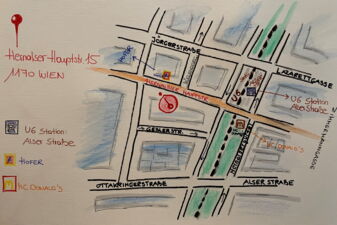 Hernalser-Hauptstr. 15
1170 WIEN
U6 Station:
Alser Straße
HOFER
MC. DONALD'S
JÖRGERSTRASSE
HERNALSER HAUPTSTR.
GEBLERSTR.
OTTAKRINGERSTRASSE
ALSER STRAßE
LAZARETTGASSE
U6
U6 Station
Alser Straße